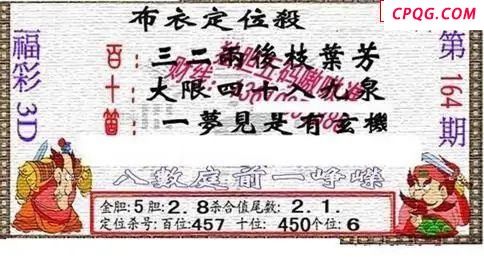 CPQG.COM
布衣定位殺
福彩3D
第164期
百:三二雨後枝葉芳
十:大限四十入九泉
個:一夢見是有玄機
八數庭前一崢嶸
金胆:5胆:2.8杀合值尾数:2.1.
定位杀号:百位457 十位:450个位:6